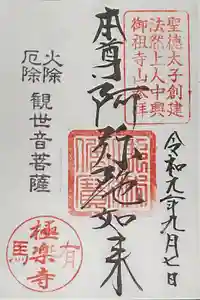 聖徳太子創建
法然上人中興
令和元年九月七日
本尊阿弥陀如来
火除
厄除
観世音菩薩
有
極楽寺
馬